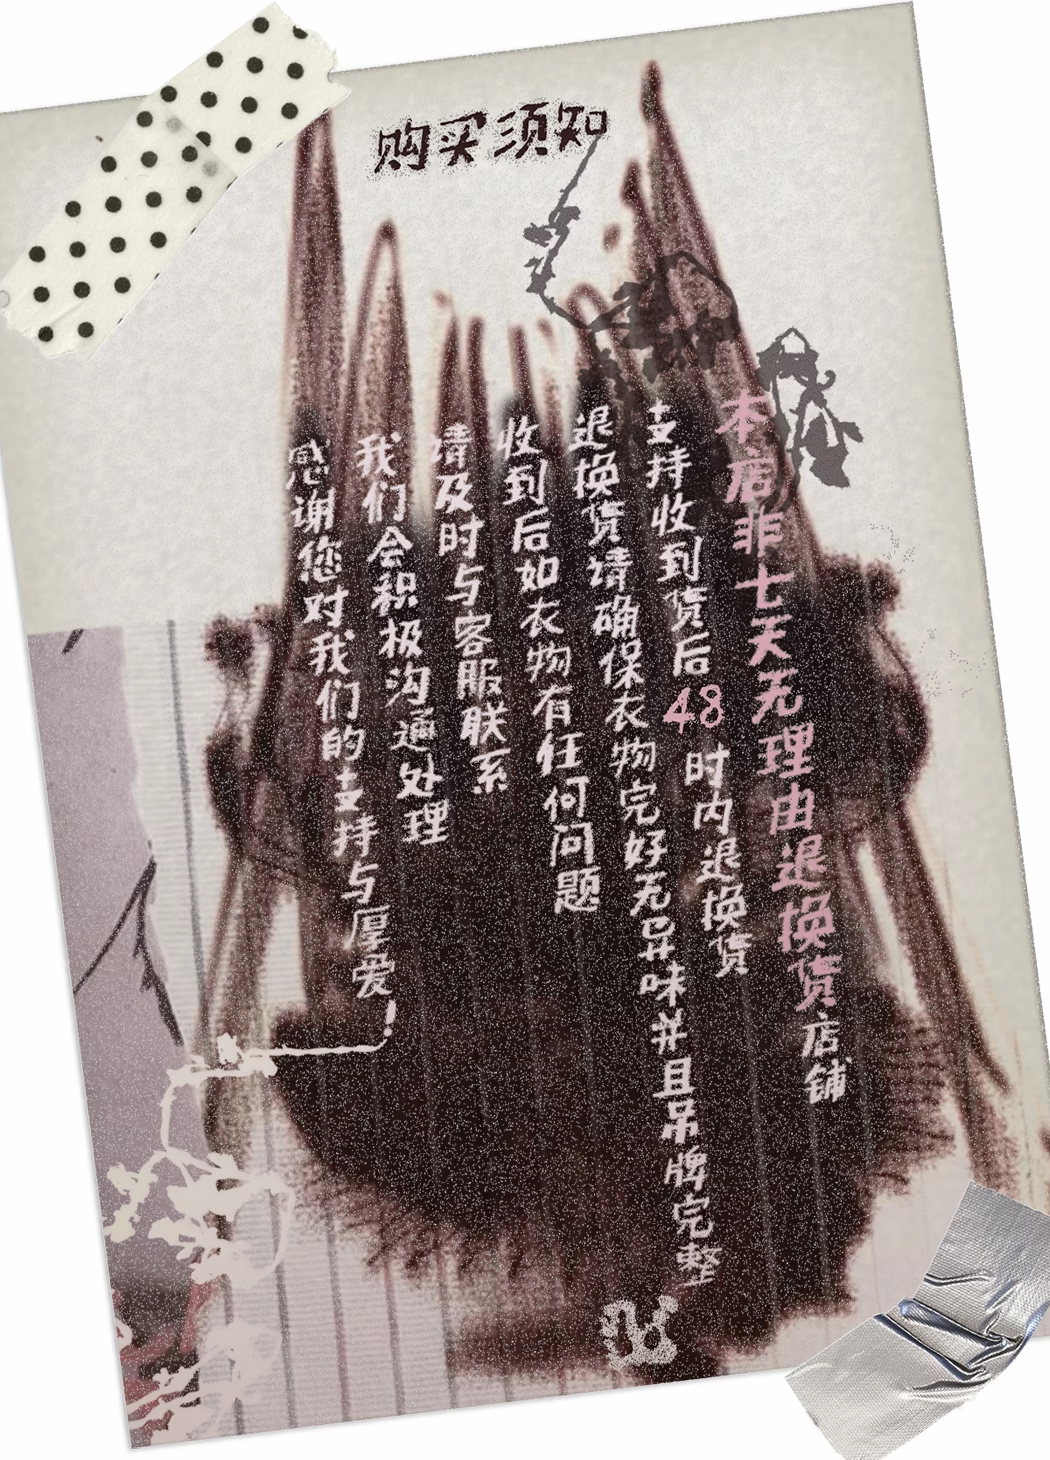 购买须知
本店非七天无理由退换货店铺
支持收到货后48时内退换货
退换货请确保衣物完好无异味并且吊牌完整
收到后如衣物有任何问题
请及时与客服联系
我们会积极沟通处理
感谢您对我们的支持与厚爱！